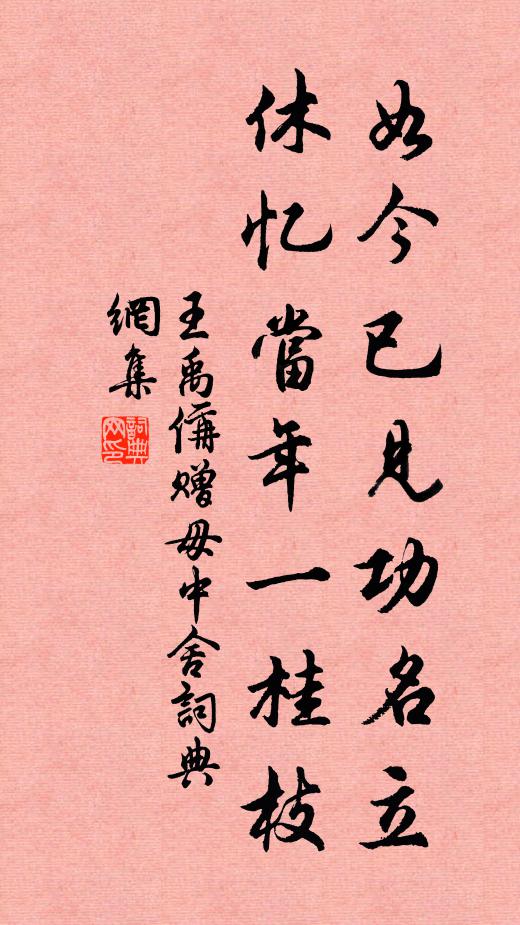 如今已见功名立
休忆當年一桂枝
王禹偁赠毋中舍詞典
網集
詞典網印